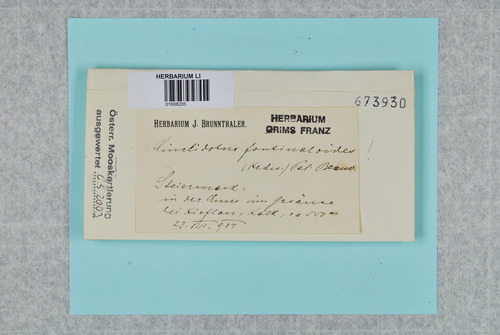 HERBARIUM LI
01608205
673930
HERBARIUM J. BRUNNTHALER.
HERBARIUM
GRIMS FRANZ
Cinclidotus fontinaloides !
(Hedw.) Pal. Beauv.
Steiermark,
in der Enns im Gesäuse
bei Hieflau, Kalk, ca 500 m
27. VII. 907
Österr. Mooskartierung
ausgewertet